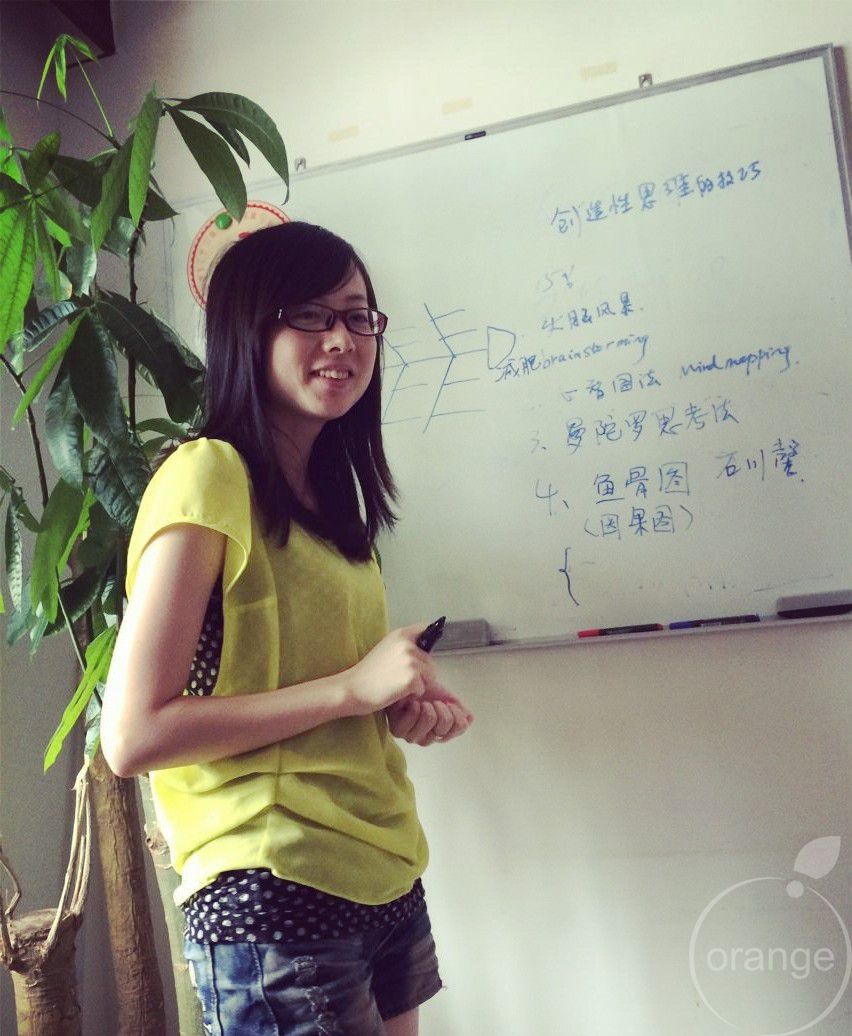 创造性思维的技巧
头脑风暴
减肥 brainstorming
心智图法 mindmapping.
3、曼陀罗思考法
4、鱼骨图 石川馨
(因果图)
orange